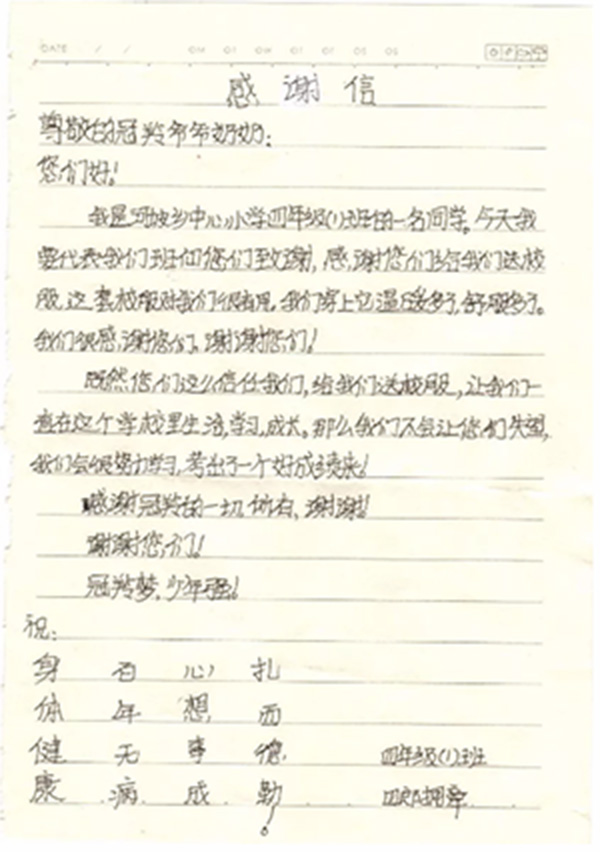 DATE / /
感谢信
尊敬的冠羚爷爷奶奶:
您们好!
我是 坡乡中心小学四年级(1)班的一名同学。今天我
要代表我们班向您们致谢,感谢您们给我们送校
服,这套校服对我们很有用。我们穿上它温暖多了,舒服多了。
我们很感谢您们,谢谢您们!
既然您们这么信任我们,给我们送校服,让我们一
直在这个学校里生活,学习,成长。那么我们不会让您们失望,
我们会很努力学习,考出了一个好成绩来!
感谢冠羚的一切所有,谢谢!
谢谢您们!
冠羚梦,少年强!
祝:
身 百 心 扎
体 年 想 西
健 无 事 德
康 病 成 勒
四年级(1)班
四郎拥